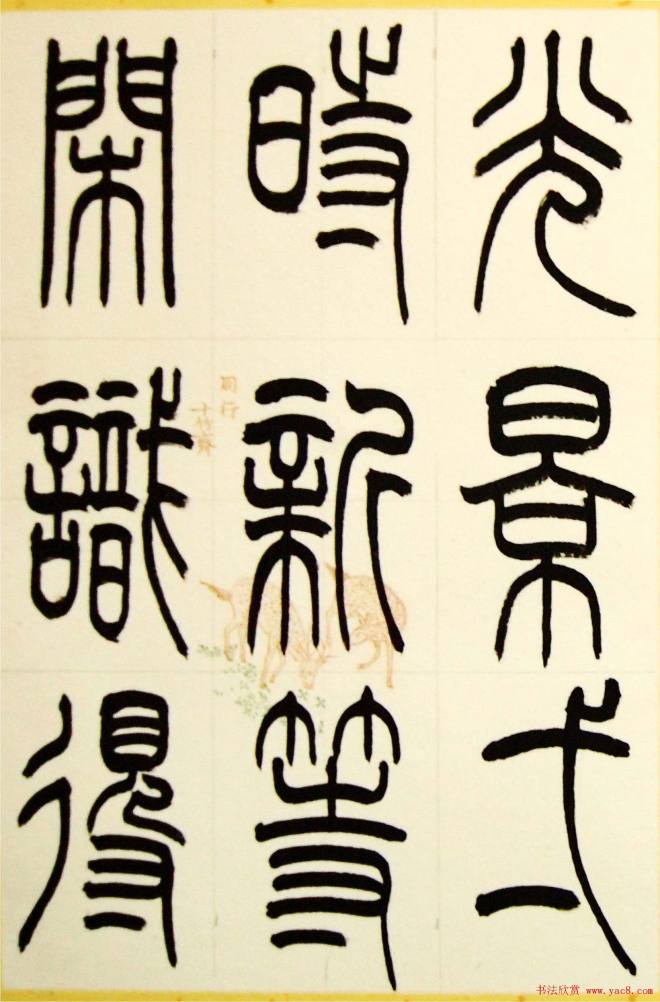 光景弌
時新等
閑識得
十竹齋
书法欣赏 www.yac8.com